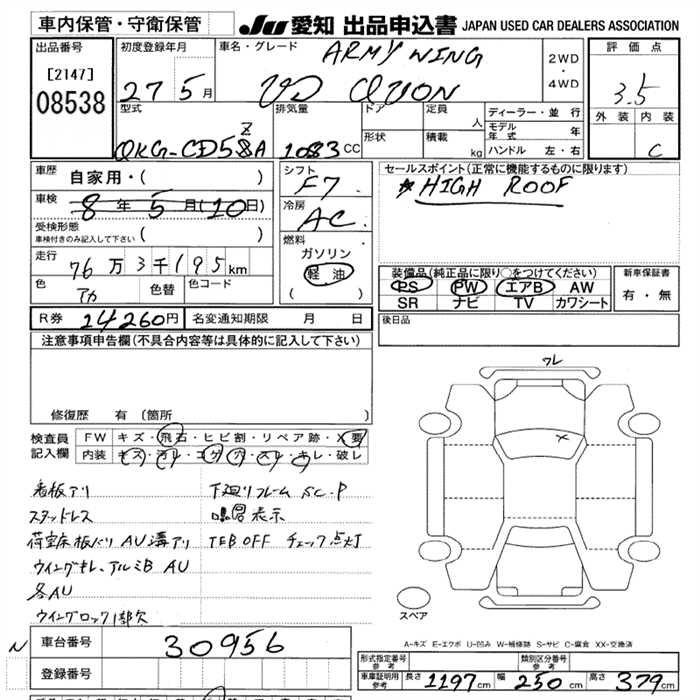 車内保管・守衛保管
JU 愛知 出品申込書 JAPAN USED CAR DEALERS ASSOCIATION
出品番号
[2147]
08538
初度登録年月
27 5月
車名・グレード
ARMY WING
UD QUON
2WD
・
4WD
評価点
3.5
外装 内装
C
型式
QKG-CD5ZA
排気量
1083CC
ドア
形状
定員
人
積載
kg
ディーラー・並行
モデル年式 年
ハンドル 左・右
車歴
自家用・( )
車検
8年5月(10日)
受検形態
車検付きのみ記入して下さい ( )
走行
76万3千195km
色
アカ
色替
色コード
シフト
F7
冷房
AC
燃料
ガソリン
軽油
( )
セールスポイント(正常に機能するものに限ります)
★HIGH ROOF
装備品(純正品に限り○をつけてください)
PS PW エアB AW
SR ナビ TV カワシート
新車保証書
有・無
R券 14260円
名変通知期限 月 日
後日品
注意事項申告欄(不具合内容等は具体的に記入して下さい)
修復歴 有(箇所 )
検査員記入欄
FW キズ・飛石・ヒビ割・リペア跡・X要
内装 キズ・汚レ・コゲ・穴・スレ・キレ・破レ
ワレ
看板アリ 下廻りフレームSC.P
スタッドレス 噐表示
荷室床板バリ AU溝アリ TEB OFF チェック点灯
ウイングキレ、アルミB AU
各AU
ウイングロック1部欠
スペア
A-キズ E-エクボ U-凹み W-補修跡 S-サビ C-腐食 XX-交換済
N
車台番号
30956
登録番号
形式指定番号 参考
類別区分番号 参考
車庫証明用 参考
長さ 1197cm 幅 250cm 高さ 379cm